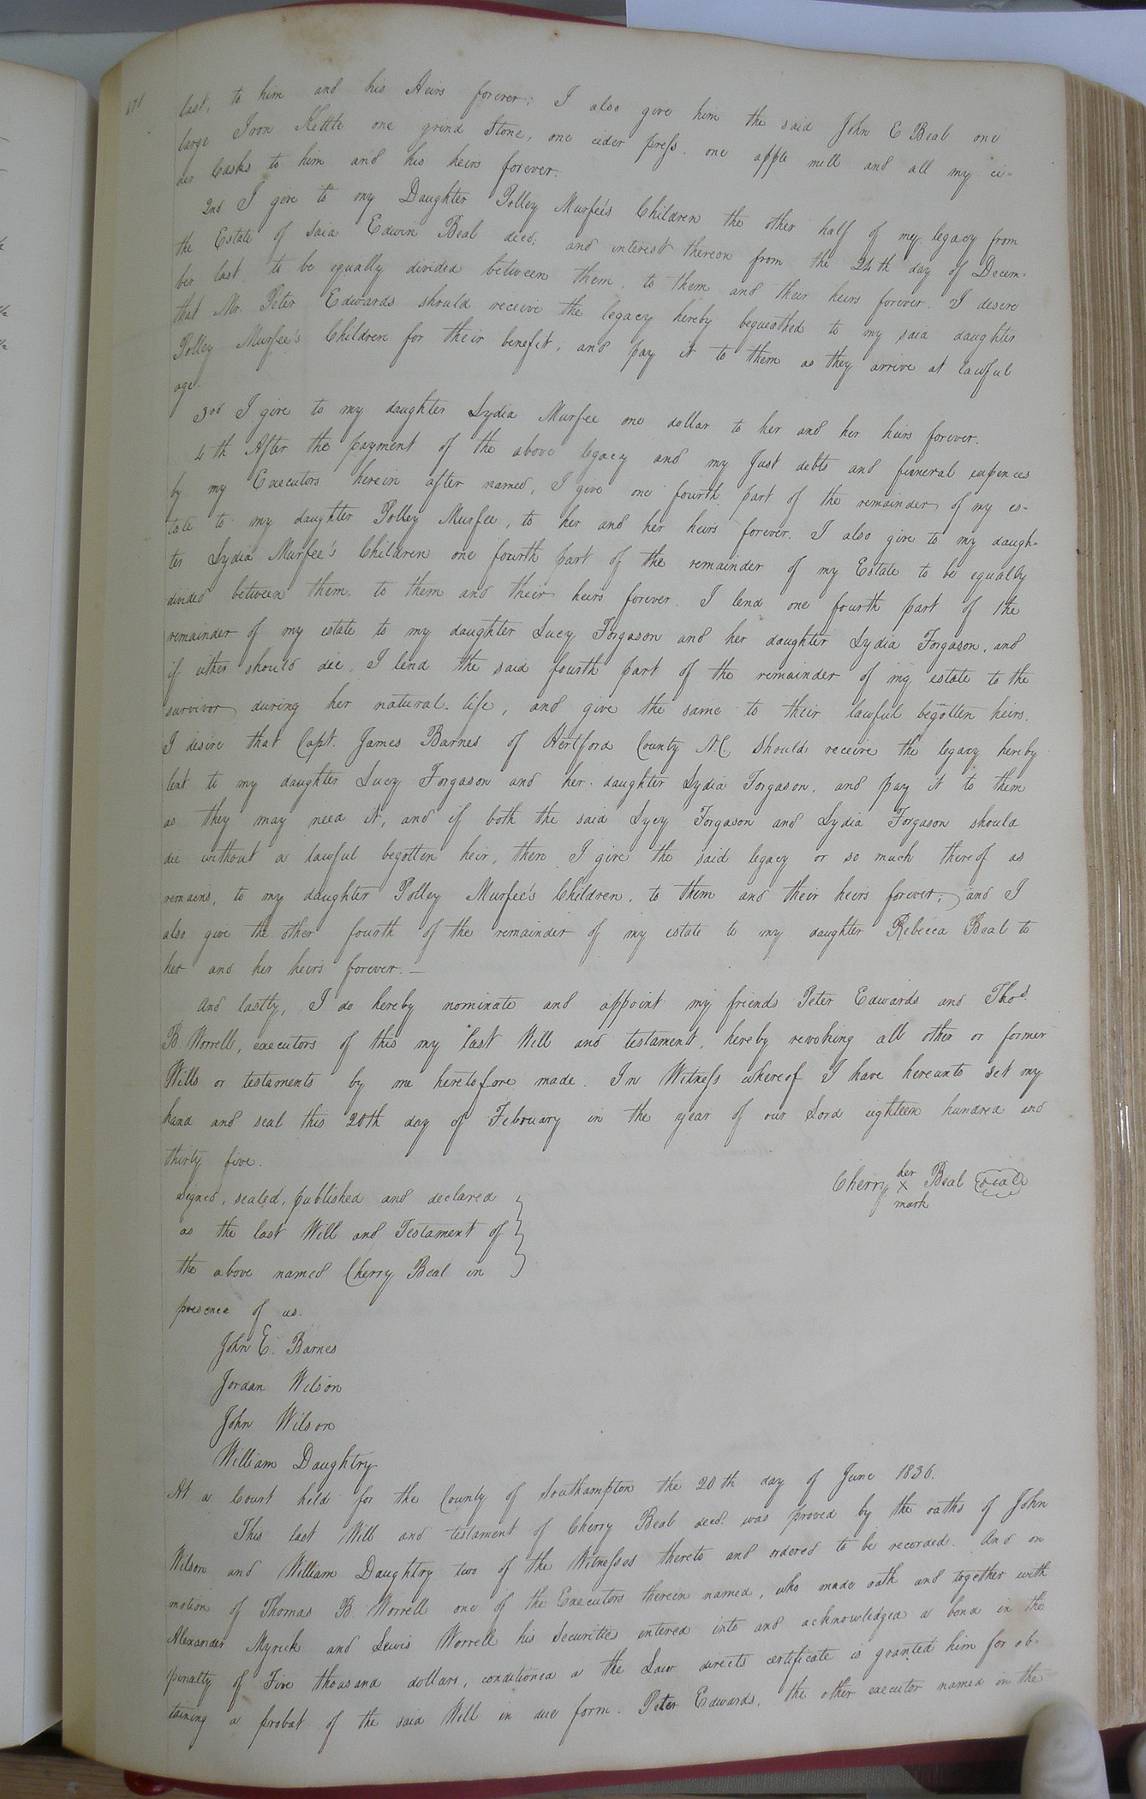 last, to him and his Heirs forever; I also give him the said John E Beal one
large Iron Kettle one grind stone, one cider press. one apple mill and all my ci-
der Casks to him and his heirs forever.
2nd I give to my Daughter Polley Murfee's Children the other half of my legacy from
the Estate of said Edwin Beal decd; and interest thereon from the 24th day of Decem-
ber last, to be equally divided between them, to them and their heirs forever. I desire
that Mr. Peter Edwards should receive the legacy hereby bequeothed to my said daughter
Polley Murfee's Children for their benefit, and pay it to them as they arrive at lawful
age.
3rd I give to my daughter Lydia Murfee one dollar to her and her heirs forever.
4th After the payment of the above legacy and my Just debts and funeral expences
by my Executors herein after named, I give one fourth part of the remainder of my es-
tate to my daughter Polley Murfee, to her and her heirs forever. I also give to my daugh-
ter Lydia Murfee's Children one fourth part of the remainder of my Estate to be equally
divided between them, to them and their heirs forever. I lend one fourth part of the
remainder of my estate to my daughter Lucy Forgason and her daughter Lydia Forgason, and
if either should die, I lend the said fourth part of the remainder of my estate to the
survivor during her natural life, and give the same to their lawful begotten heirs.
I desire that Capt. James Barnes of Hertford County N.C. should receive the legacy hereby
lent to my daughter Lucy Forgason and her daughter Lydia Forgason, and pay it to them
as they may need it, and if both the said Lyey Forgason and Lydia Forgason should
die without a lawful begotten heir, then I give the said legacy or so much thereof as
remains, to my daughter Polley Murfee's Children, to them and their heirs forever, and I
also give the other fourth of the remainder of my estate to my daughter Rebecca Beal to
her and her heirs forever. —
And lastly, I do hereby nominate and appoint my friends Peter Edwards and Thos
B. Worrell, executors of this my last Will and testament, hereby revoking all other or former
Wills or testaments by me heretofore made. In Witness whereof I have hereunto set my
hand and seal this 20th day of February in the year of our Lord eighteen hundred and
thirty five.
her
Cherry x Beal seal
mark
signed, sealed, published and declared
as the last Will and Testament of
the above named Cherry Beal in
presence of us.
John E. Barnes
Jordan Wilson
John Wilson
William Daughtry
At a Court held for the County of Southampton the 20th day of June 1836.
This last Will and testament of Cherry Beal decd. was proved by the oaths of John
Wilson and William Daughtry two of the Witnesses thereto and ordered to be recorded. And on
motion of Thomas B. Worrell one of the Executors therein named, who made oath and together with
Alexander Myrick and Lewis Worrell his securities entered into and acknowledged a bond in the
penalty of Five thousand dollars, conditioned as the Law directs certificate is granted him for ob-
taining a probat of the said Will in due form. Peter Edwards, the other executor named in the